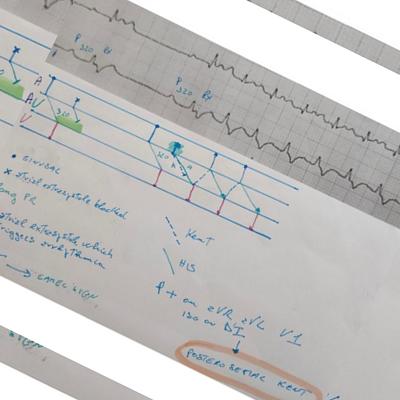 P
320 Pr
P
320 Pr
A
AV
V
320
• SINUSAL
x atrial extrasystole blocked
long PR
atrial extrasystole which
triggers arrhythmia
KENT
HIS
P + on aVR aVL V1
ISO on DI
POSTEROSEPTAL KENT